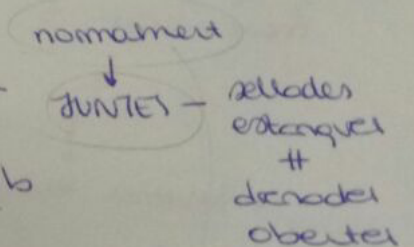 normalment
↓
JUNTES - sellades
estanques
≠
drenades
obertes
b